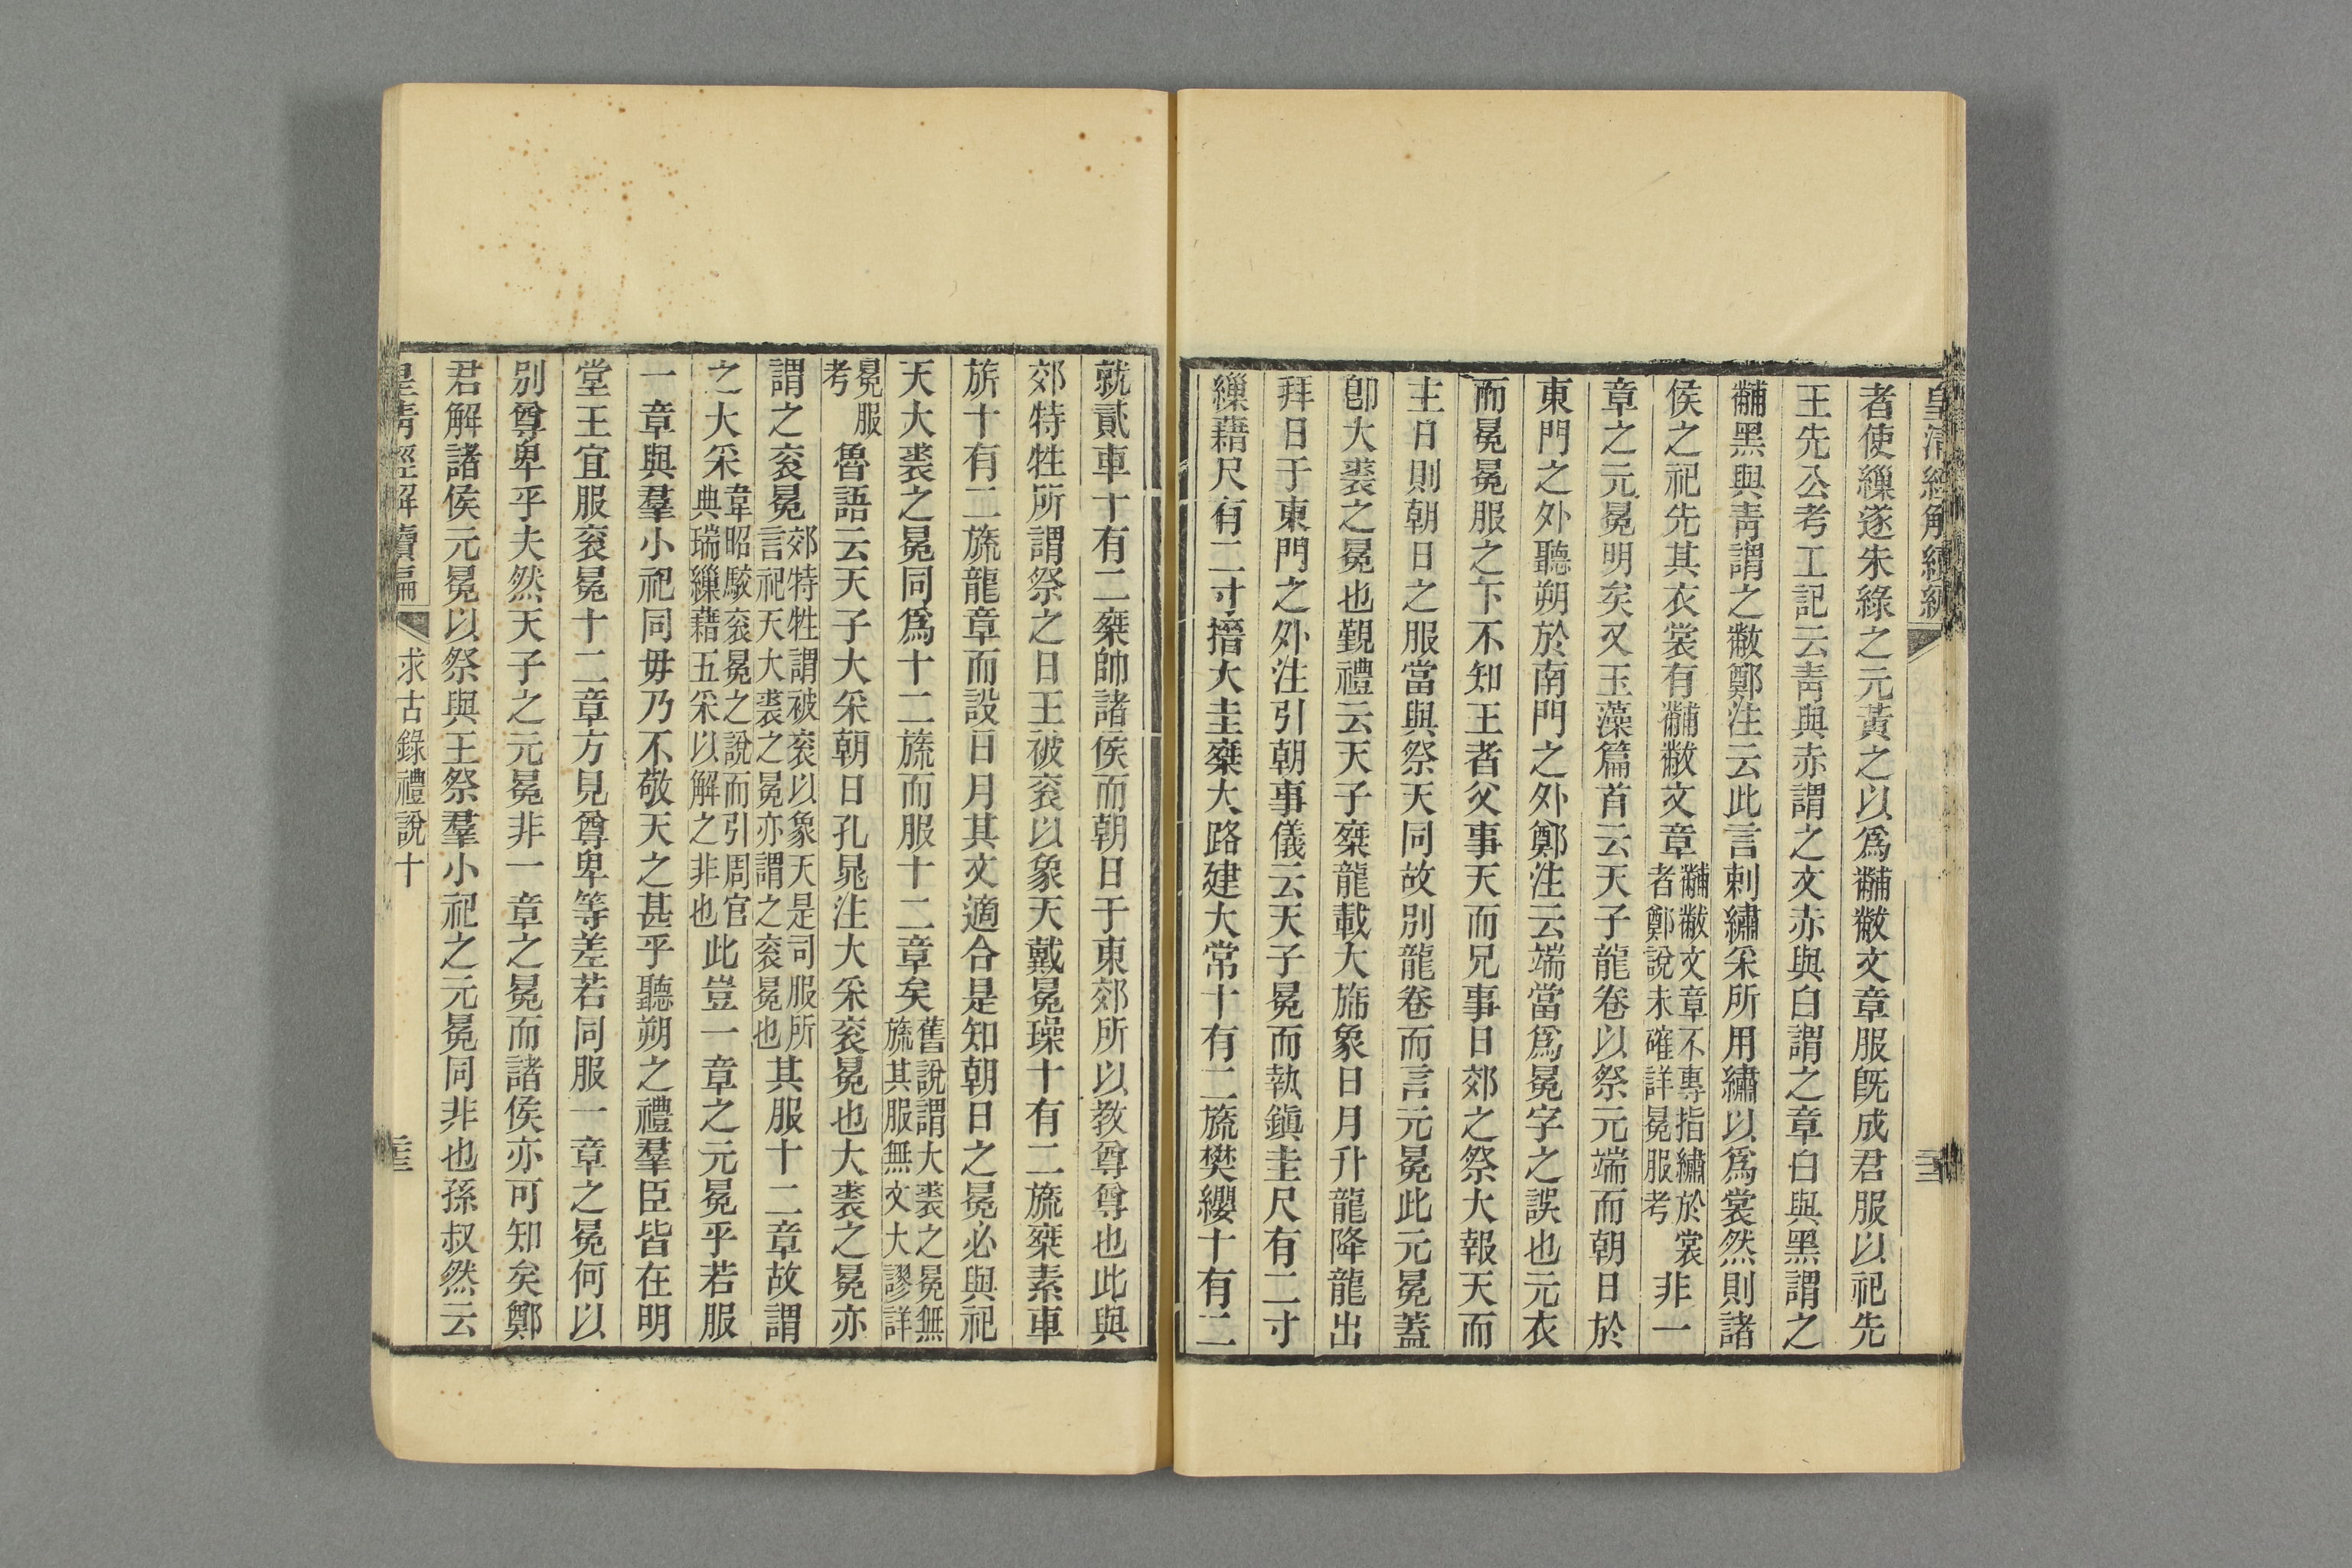 皇清經解續編
三
者使繅遂朱綠之元黃之以爲黼黻文章服旣成君服以祀先
王先公考工記云靑與赤謂之文赤與白謂之章白與黑謂之
黼黑與靑謂之黻鄭注云此言刺繡采所用繡以爲裳然則諸
侯之祀先其衣裳有黼黻文章黼黻文章不專指繡於裳者鄭說未確詳冕服考非一
章之元冕明矣又玉藻篇首云天子龍卷以祭元端而朝日於
東門之外聽朔於南門之外鄭注云端當爲冕字之誤也元衣
而冕冕服之下不知王者父事天而兄事日郊之祭大報天而
主日則朝日之服當與祭天同故別龍卷而言元冕此元冕蓋
卽大裘之冕也覲禮云天子椉龍載大旂象日月升龍降龍出
拜日于東門之外注引朝事儀云天子冕而執鎭圭尺有二寸
繅藉尺有二寸搢大圭椉大路建大常十有二旒樊纓十有二
就貳車十有二椉帥諸侯而朝日于東郊所以敎尊尊也此與
郊特牲所謂祭之日王被袞以象天戴冕璪十有二旒椉素車
旂十有二旒龍章而設日月其文適合是知朝日之冕必與祀
天大裘之冕同爲十二旒而服十二章矣舊說謂大裘之冕無旒其服無文大謬詳
冕服考魯語云天子大采朝日孔晁注大采袞冕也大裘之冕亦
謂之袞冕郊特牲謂被袞以象天是司服所言祀天大裘之冕亦謂之袞冕也其服十二章故謂
之大采韋昭駁袞冕之說而引周官典瑞繅藉五采以解之非也此豈一章之元冕乎若服
一章與羣小祀同毋乃不敬天之甚乎聽朔之禮羣臣皆在明
堂王宜服袞冕十二章方見尊卑等差若同服一章之冕何以
別尊卑乎夫然天子之元冕非一章之冕而諸侯亦可知矣鄭
君解諸侯元冕以祭與王祭羣小祀之元冕同非也孫叔然云
皇淸經解續編
求古錄禮說十